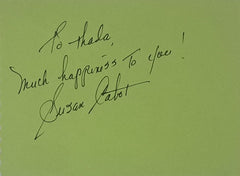 To Thada,
Much happiness to you!
Susan Cabot